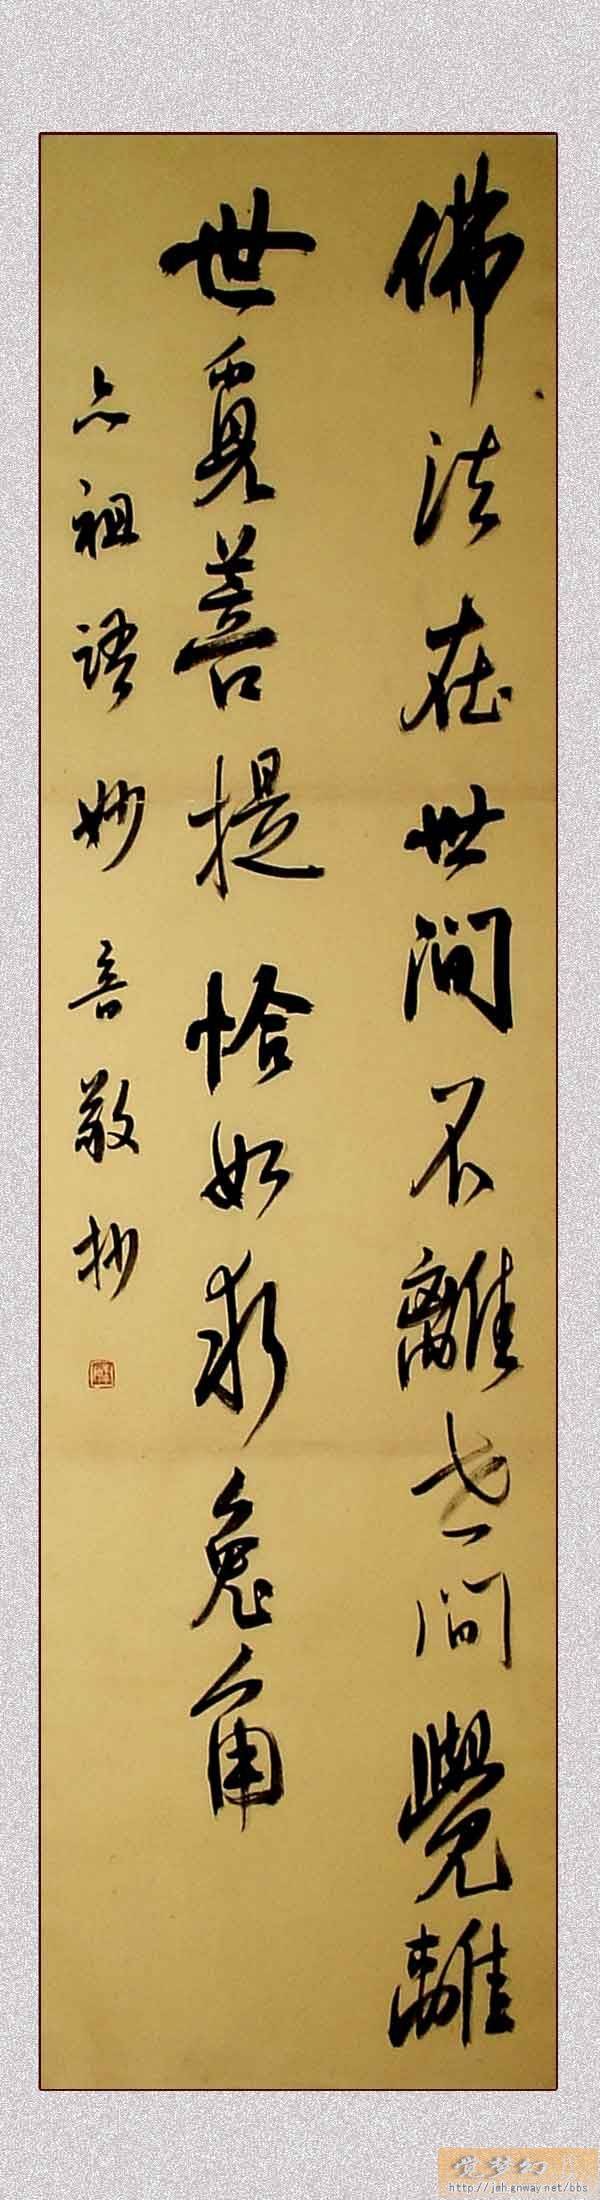 佛法在世間不離世間覺離
世覓菩提恰如求兔角
六祖語妙音敬抄
覚梦幻
http://jmh.gnway.net/bbs